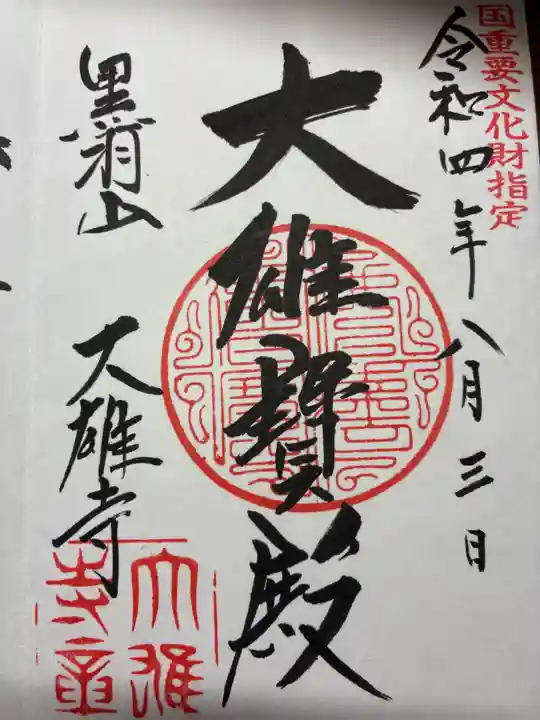 国重要文化財指定
令和四年八月三日
大雄寳殿
黒羽山
大雄寺
大雄
寺章